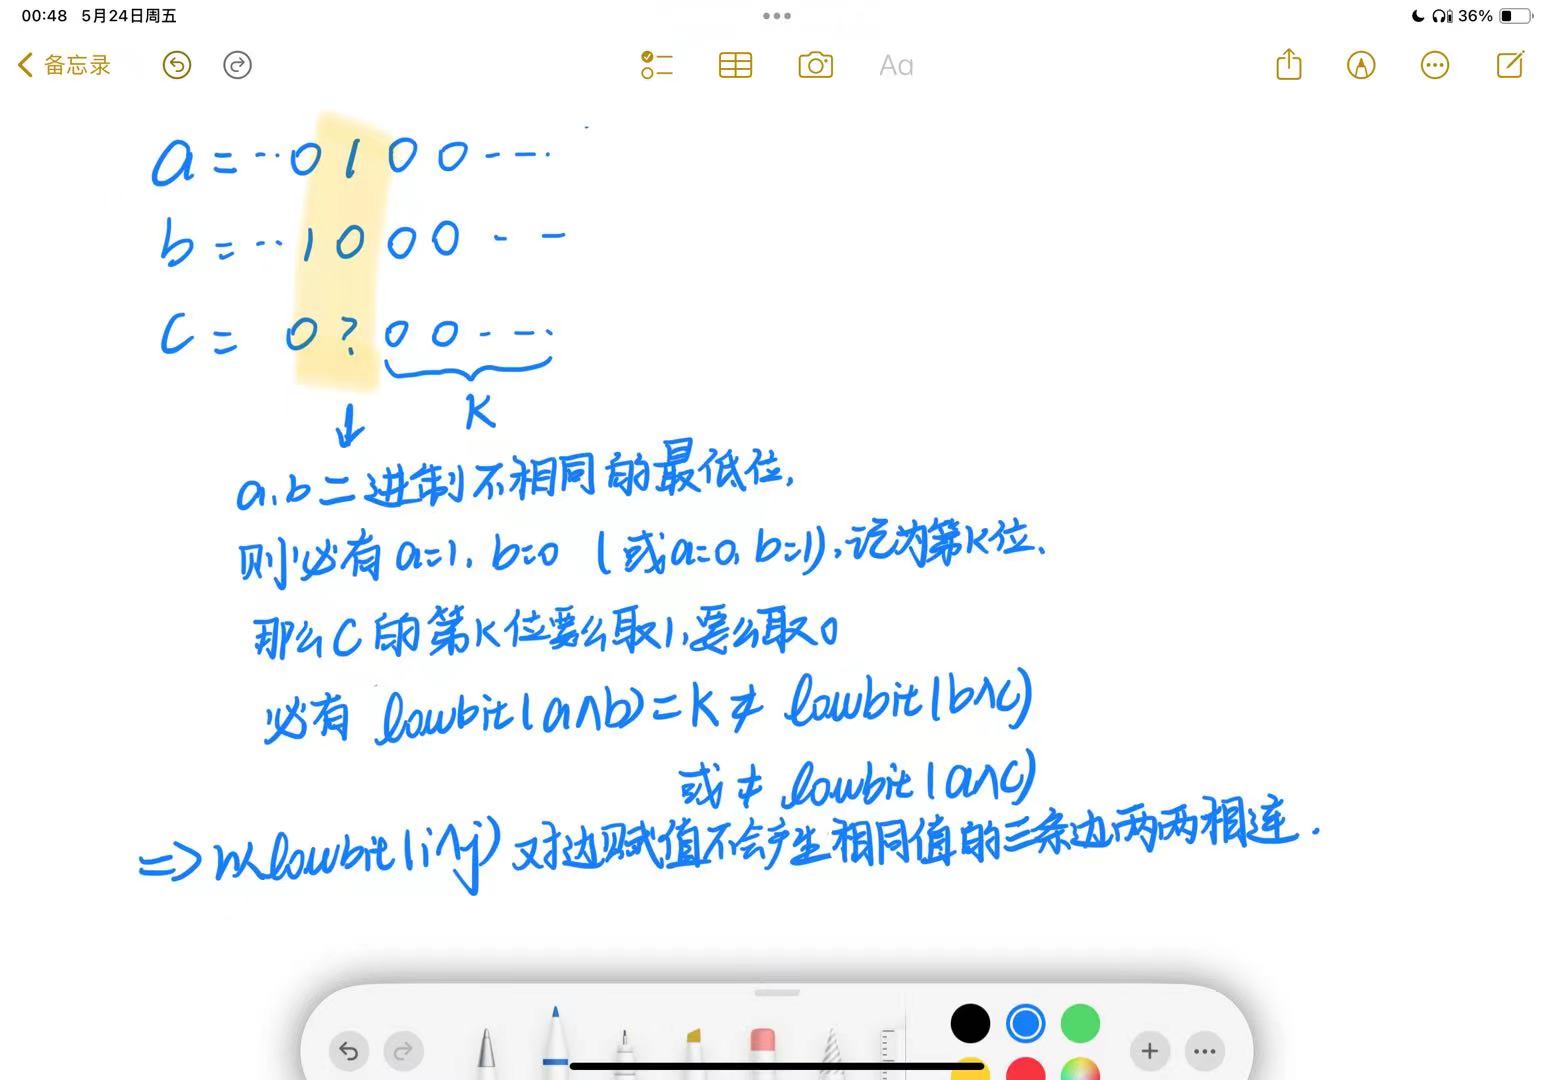 00:48 5月24日周五
36%
备忘录
Aa
a = ··0 1 0 0 - - ·
b = ··1 0 0 0 - -
c = 0 ? 0 0 - - ·
K
a、b二进制不相同的最低位,
则必有a=1, b=0 (或a=0, b=1), 记为第K位、
那么C的第K位要么取1, 要么取0
必有 lowbit(a^b)=K ≠ lowbit(b^c)
或 ≠ lowbit(a^c)
=> 以lowbit(i^j)对边赋值不会产生相同值的三条边两两相连.